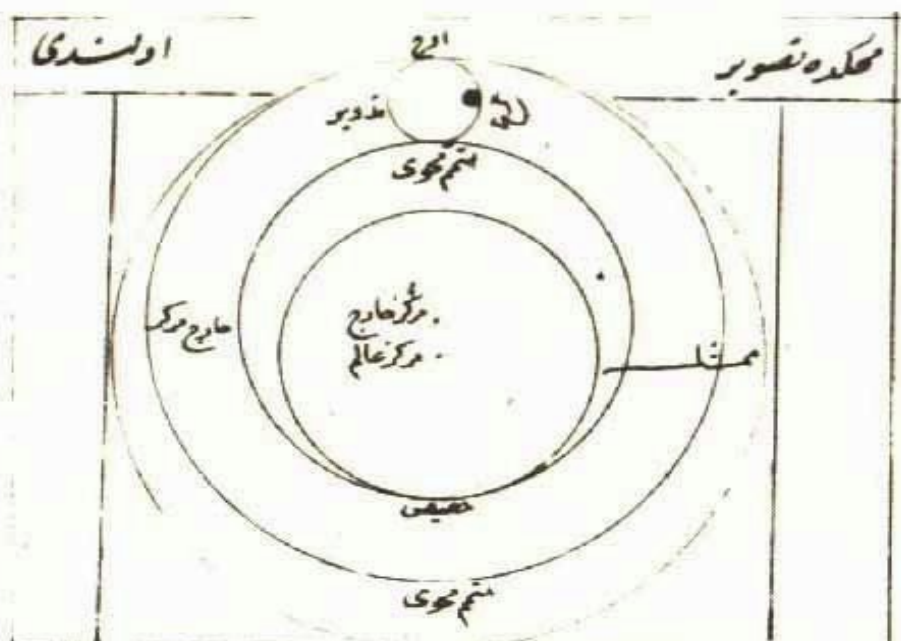 محلده تصویر اولندی
اوج
تدویر
متمم محوی
خارج مرکز
مرکز خارج
مرکز عالم
ممثل
حضیض
متمم محوی